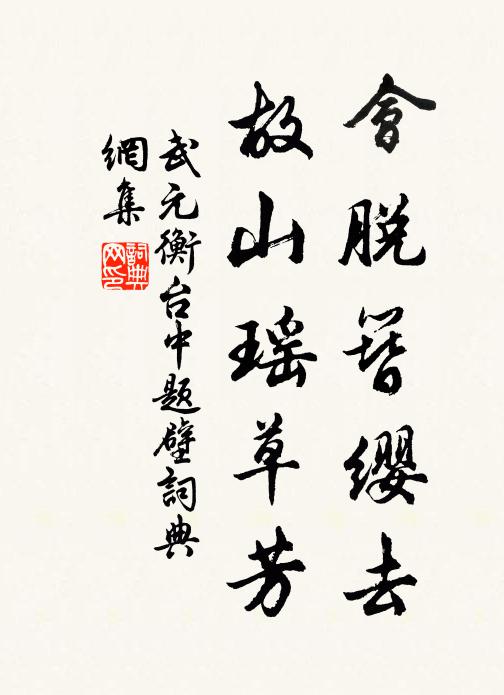 會脱簪缨去
故山瑶草芳
武元衡台中題壁詞典
網集
詞典
网印